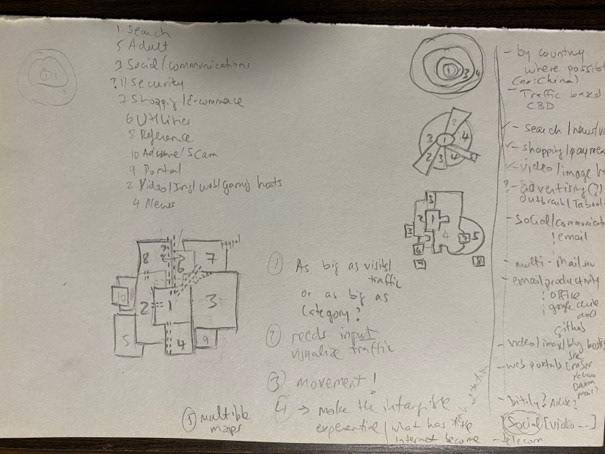 1 Search
5 Adult
3 Social/communications
11 Security
7 Shopping/E-commerce
6 Utilities
8 Reference
10 Adware/Scam
9 Portal
2 Video/Img/web/gaming hosts
4 News
8
6
7
2
1
3
5
4
9
① As big as visits/
traffic
or as big as
category?
② needs input
visualize traffic
③ movement!
4 → make the intangible
experiential/what has the
internet become
⑤ multiple
maps
1
3
4
3
4
2
3
4
2
1
4
3
5
6
7
8
- by country
where possible
(ex: China)
- Traffic based
CBD
- search/news/
- shopping/payment
- video/image
? - advertising(?)
outbrain/
- Social/communication
email
- multi-
- email productivity
office
google drive
Github
- video/img/blog hosts
- web portals
yahoo
Daum
- bitly?
[Social [video...]
- telecom